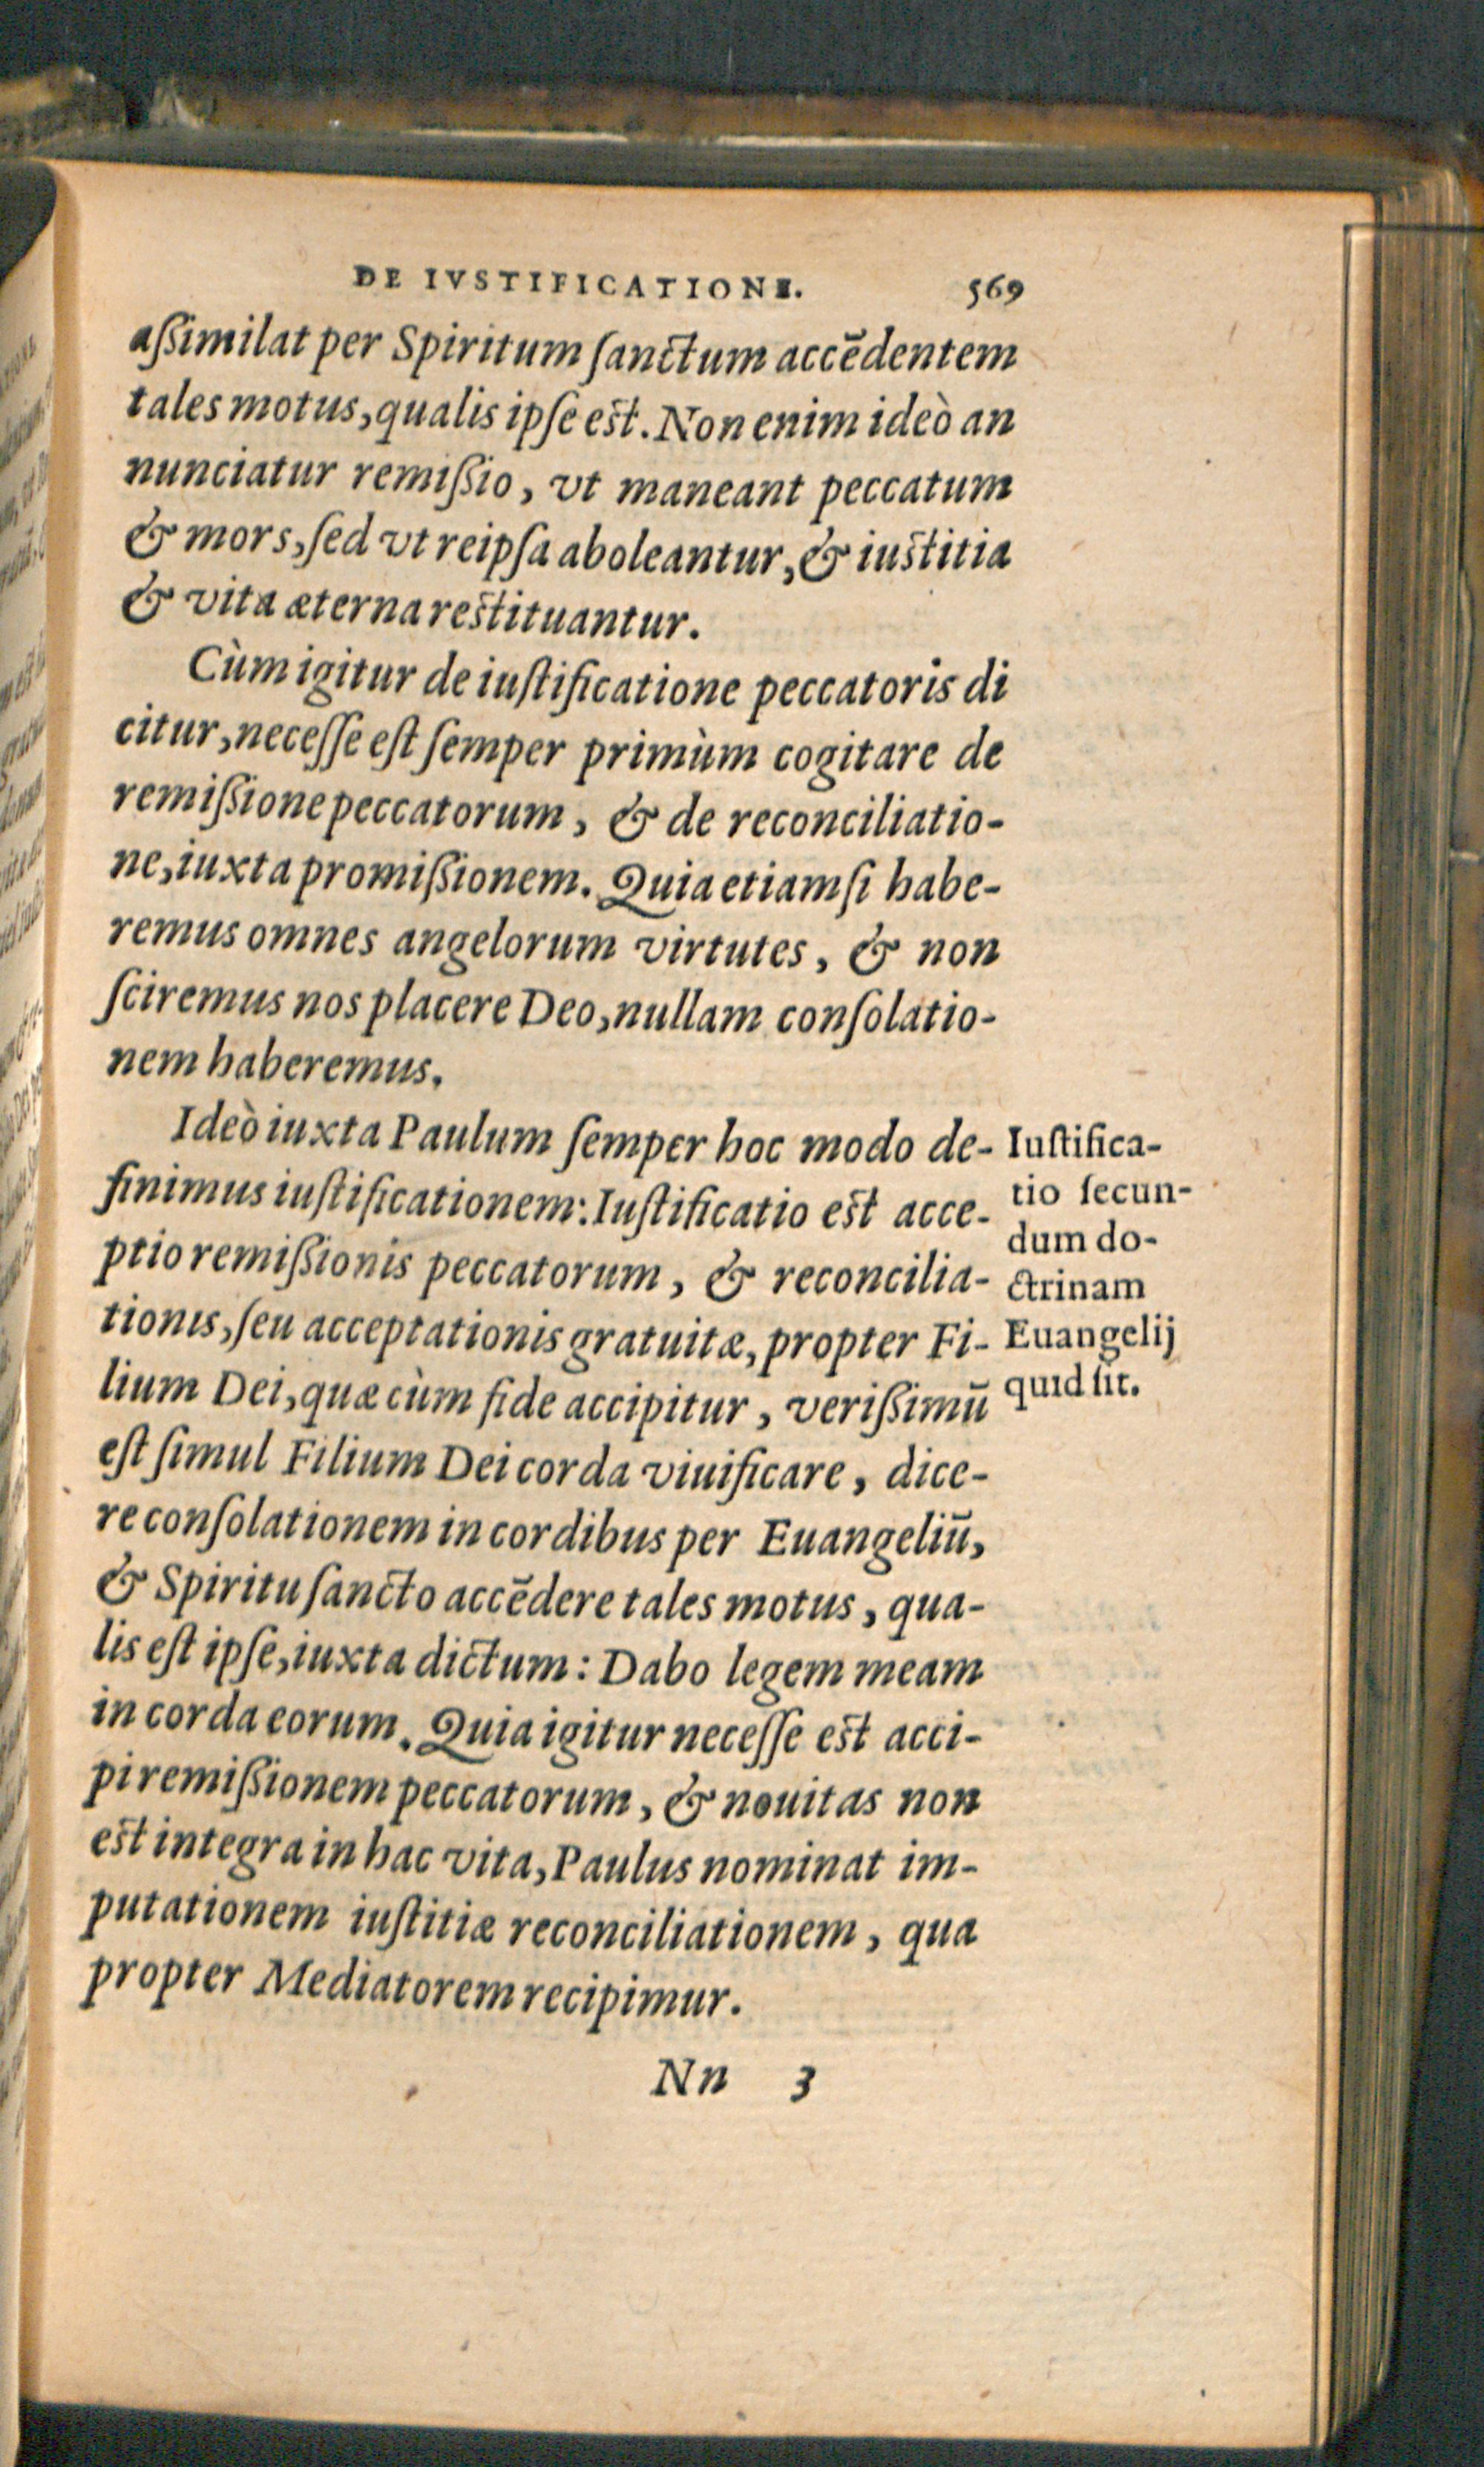 DE IVSTIFICATIONE. 569
aſſimilat per Spiritum ſanctum accēdentem
tales motus, qualis ipſe est. Non enim ideò an
nunciatur remiſſio, vt maneant peccatum
& mors, ſed vt reipſa aboleantur, & iustitia
& vita æterna restituantur.
Cùm igitur de iuſtificatione peccatoris di
citur, neceſſe eſt ſemper primùm cogitare de
remiſſione peccatorum, & de reconciliatio-
ne, iuxta promiſſionem. Quia etiamſi habe-
remus omnes angelorum virtutes, & non
ſciremus nos placere Deo, nullam conſolatio-
nem haberemus.
Ideò iuxta Paulum ſemper hoc modo de-
finimus iuſtificationem: Iuſtificatio est acce-
ptio remiſſionis peccatorum, & reconcilia-
tionis, ſeu acceptationis gratuitæ, propter Fi-
lium Dei, quæ cùm fide accipitur, veriſſimū
eſt ſimul Filium Dei corda viuificare, dice-
re conſolationem in cordibus per Euangeliū,
& Spiritu ſancto accēdere tales motus, qua-
lis eſt ipſe, iuxta dictum: Dabo legem meam
in corda eorum. Quia igitur neceſſe est acci-
pi remiſſionem peccatorum, & nouitas non
est integra in hac vita, Paulus nominat im-
putationem iuſtitiæ reconciliationem, qua
propter Mediatorem recipimur.
Iuſtifica-
tio ſecun-
dum do-
ctrinam
Euangelij
quid ſit.
Nn 3